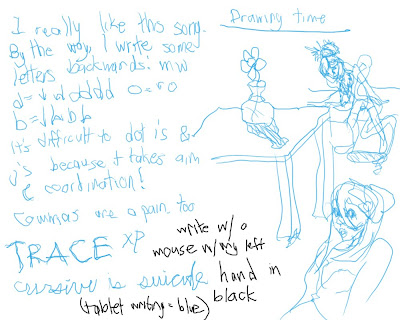 I really like this song.
By the way, I write some
letters backwards: m w
d = d d d d o = o
b = b b b
It's difficult to dot i's &
j's because it takes aim
& coordination!
Commas are a pain, too
TRACE XP
cursive is suicide
(tablet writing = blue)
write w/ a
mouse w/ my left
hand in
black
Drawing time